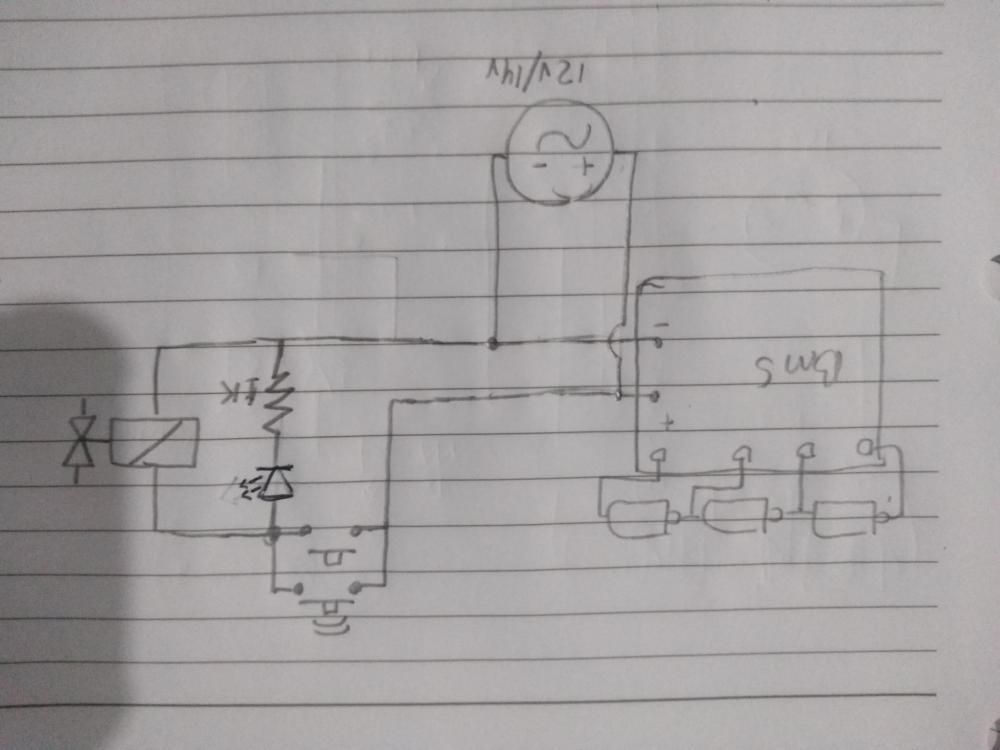 +
BMS
-
1K
+ -
12V/14V